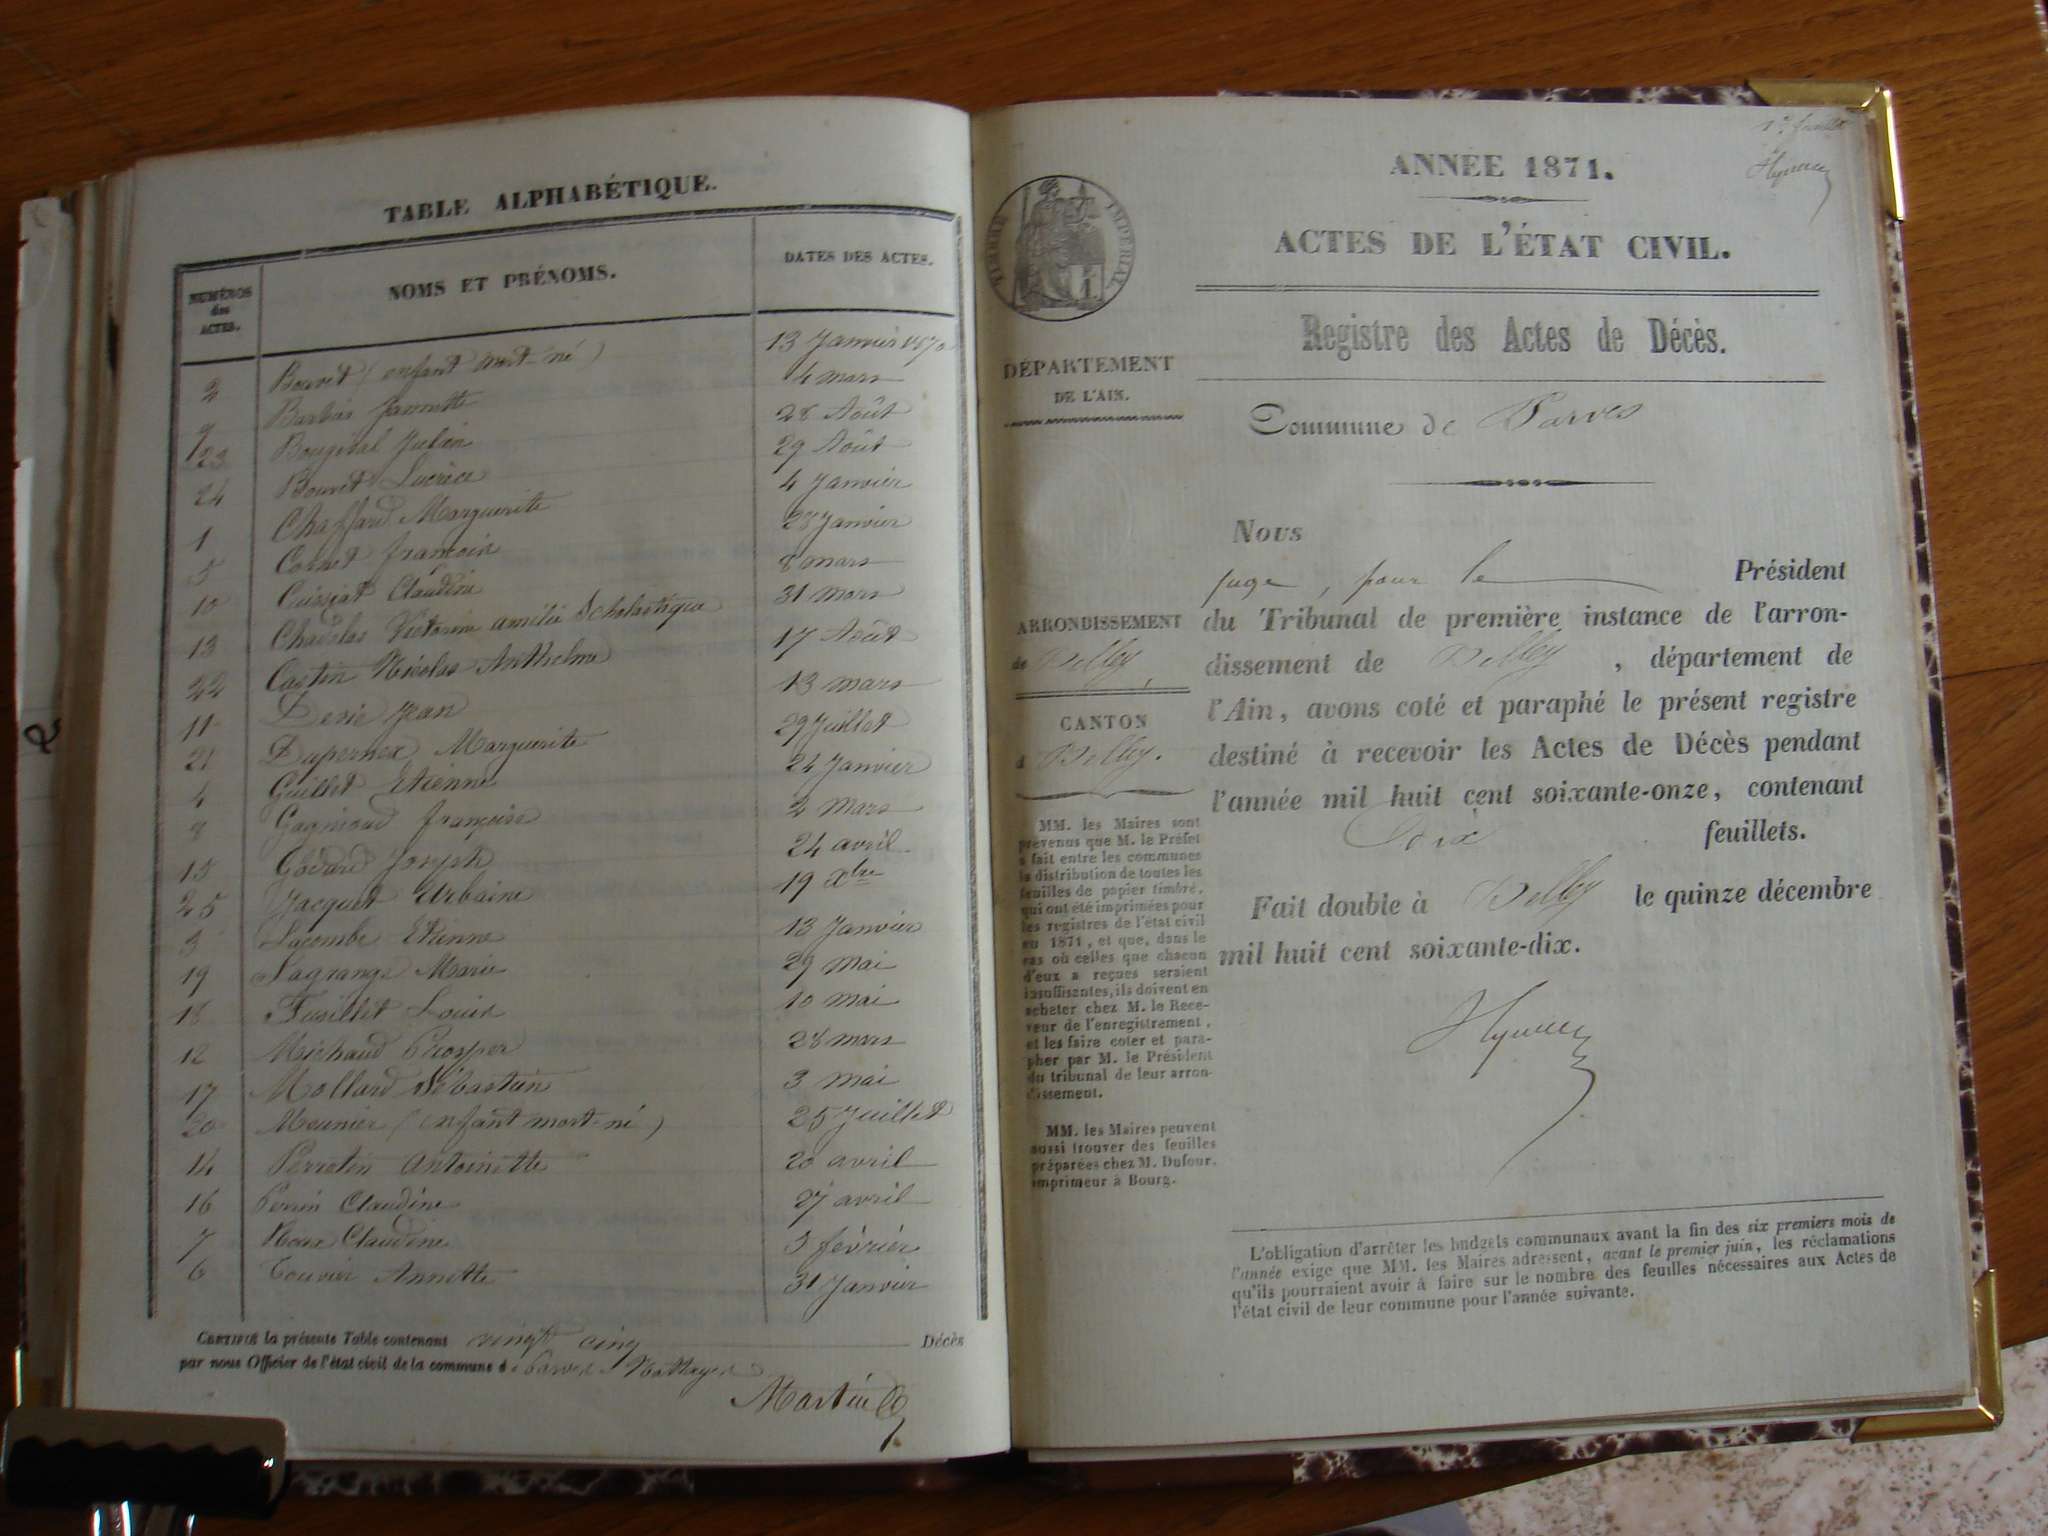 TABLE ALPHABÉTIQUE.
NUMÉROS des ACTES. NOMS ET PRÉNOMS. DATES DES ACTES.
2 Bouvet (enfant mort-né) 13 Janvier 1870
9 Barbin Jannette 4 mars
23 Bougival Julien 28 Août
24 Bouvet Lucrèce 29 Août
1 Chaffard Marguerite 4 Janvier
5 Cornet francois 28 Janvier
10 Cuissat Claudine 8 mars
13 Victorine amélie Scholastique 31 mars
22 Castin Nicolas Anthelme 17 Août
11 Jean 13 mars
21 Dupernex Marguerite 29 Juillet
4 Guillet Etienne 24 Janvier
8 françoise 2 mars
15 Godard Joseph 24 avril
25 Jacquet Urbaine 19 Xbre
3 Lacombe Etienne 13 Janvier
19 Lagrange Marie 29 mai
18 Fusillet Louis 10 mai
12 Michaud Prosper 28 mars
17 Mollard Sébastien 3 mai
20 Meunier (enfant mort-né) 25 Juillet
14 Perretin Antoinette 20 avril
16 Perrin Claudine 27 avril
7 Roux Claudine 3 février
6 Touvier Annette 31 Janvier
CERTIFIÉ la présente Table contenant vingt cinq Décès
par nous Officier de l'état civil de la commune d Parves Nattages
Martin
ANNÉE 1871.
ACTES DE L'ÉTAT CIVIL.
TIMBRE IMPÉRIAL
Registre des Actes de Décès.
DÉPARTEMENT
DE L'AIN.
Commune de Parves
ARRONDISSEMENT
de Belley,
CANTON
d Belley.
MM. les Maires sont
prévenus que M. le Préfet
a fait entre les communes
la distribution de toutes les
feuilles de papier timbré,
qui ont été imprimées pour
les registres de l'état civil
en 1871, et que, dans le
cas où celles que chacun
d'eux a reçues seraient
insuffisantes, ils doivent en
acheter chez M. le Rece-
veur de l'enregistrement,
et les faire coter et para-
pher par M. le Président
du tribunal de leur arron-
dissement.
MM. les Maires peuvent
aussi trouver des feuilles
préparées chez M. Dufour,
imprimeur à Bourg.
Nous
juge, pour le Président
du Tribunal de première instance de l'arron-
dissement de Belley, département de
l'Ain, avons coté et paraphé le présent registre
destiné à recevoir les Actes de Décès pendant
l'année mil huit cent soixante-onze, contenant
feuillets.
Fait double à Belley le quinze décembre
mil huit cent soixante-dix.
L'obligation d'arrêter les budgets communaux avant la fin des six premiers mois de
l'année exige que MM. les Maires adressent, avant le premier juin, les réclamations
qu'ils pourraient avoir à faire sur le nombre des feuilles nécessaires aux Actes de
l'état civil de leur commune pour l'année suivante.